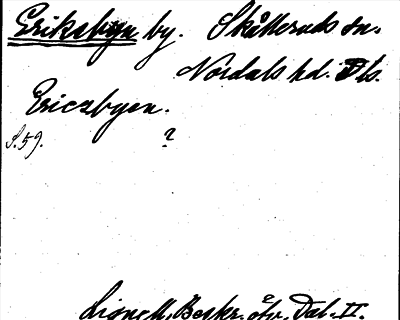 Eriksbyn by. Skålleruds sn.
Nordals hd. Ds.
Ericzbyen.
S. 59. ?
Lignell, Beskr. öfv. Dal. II.